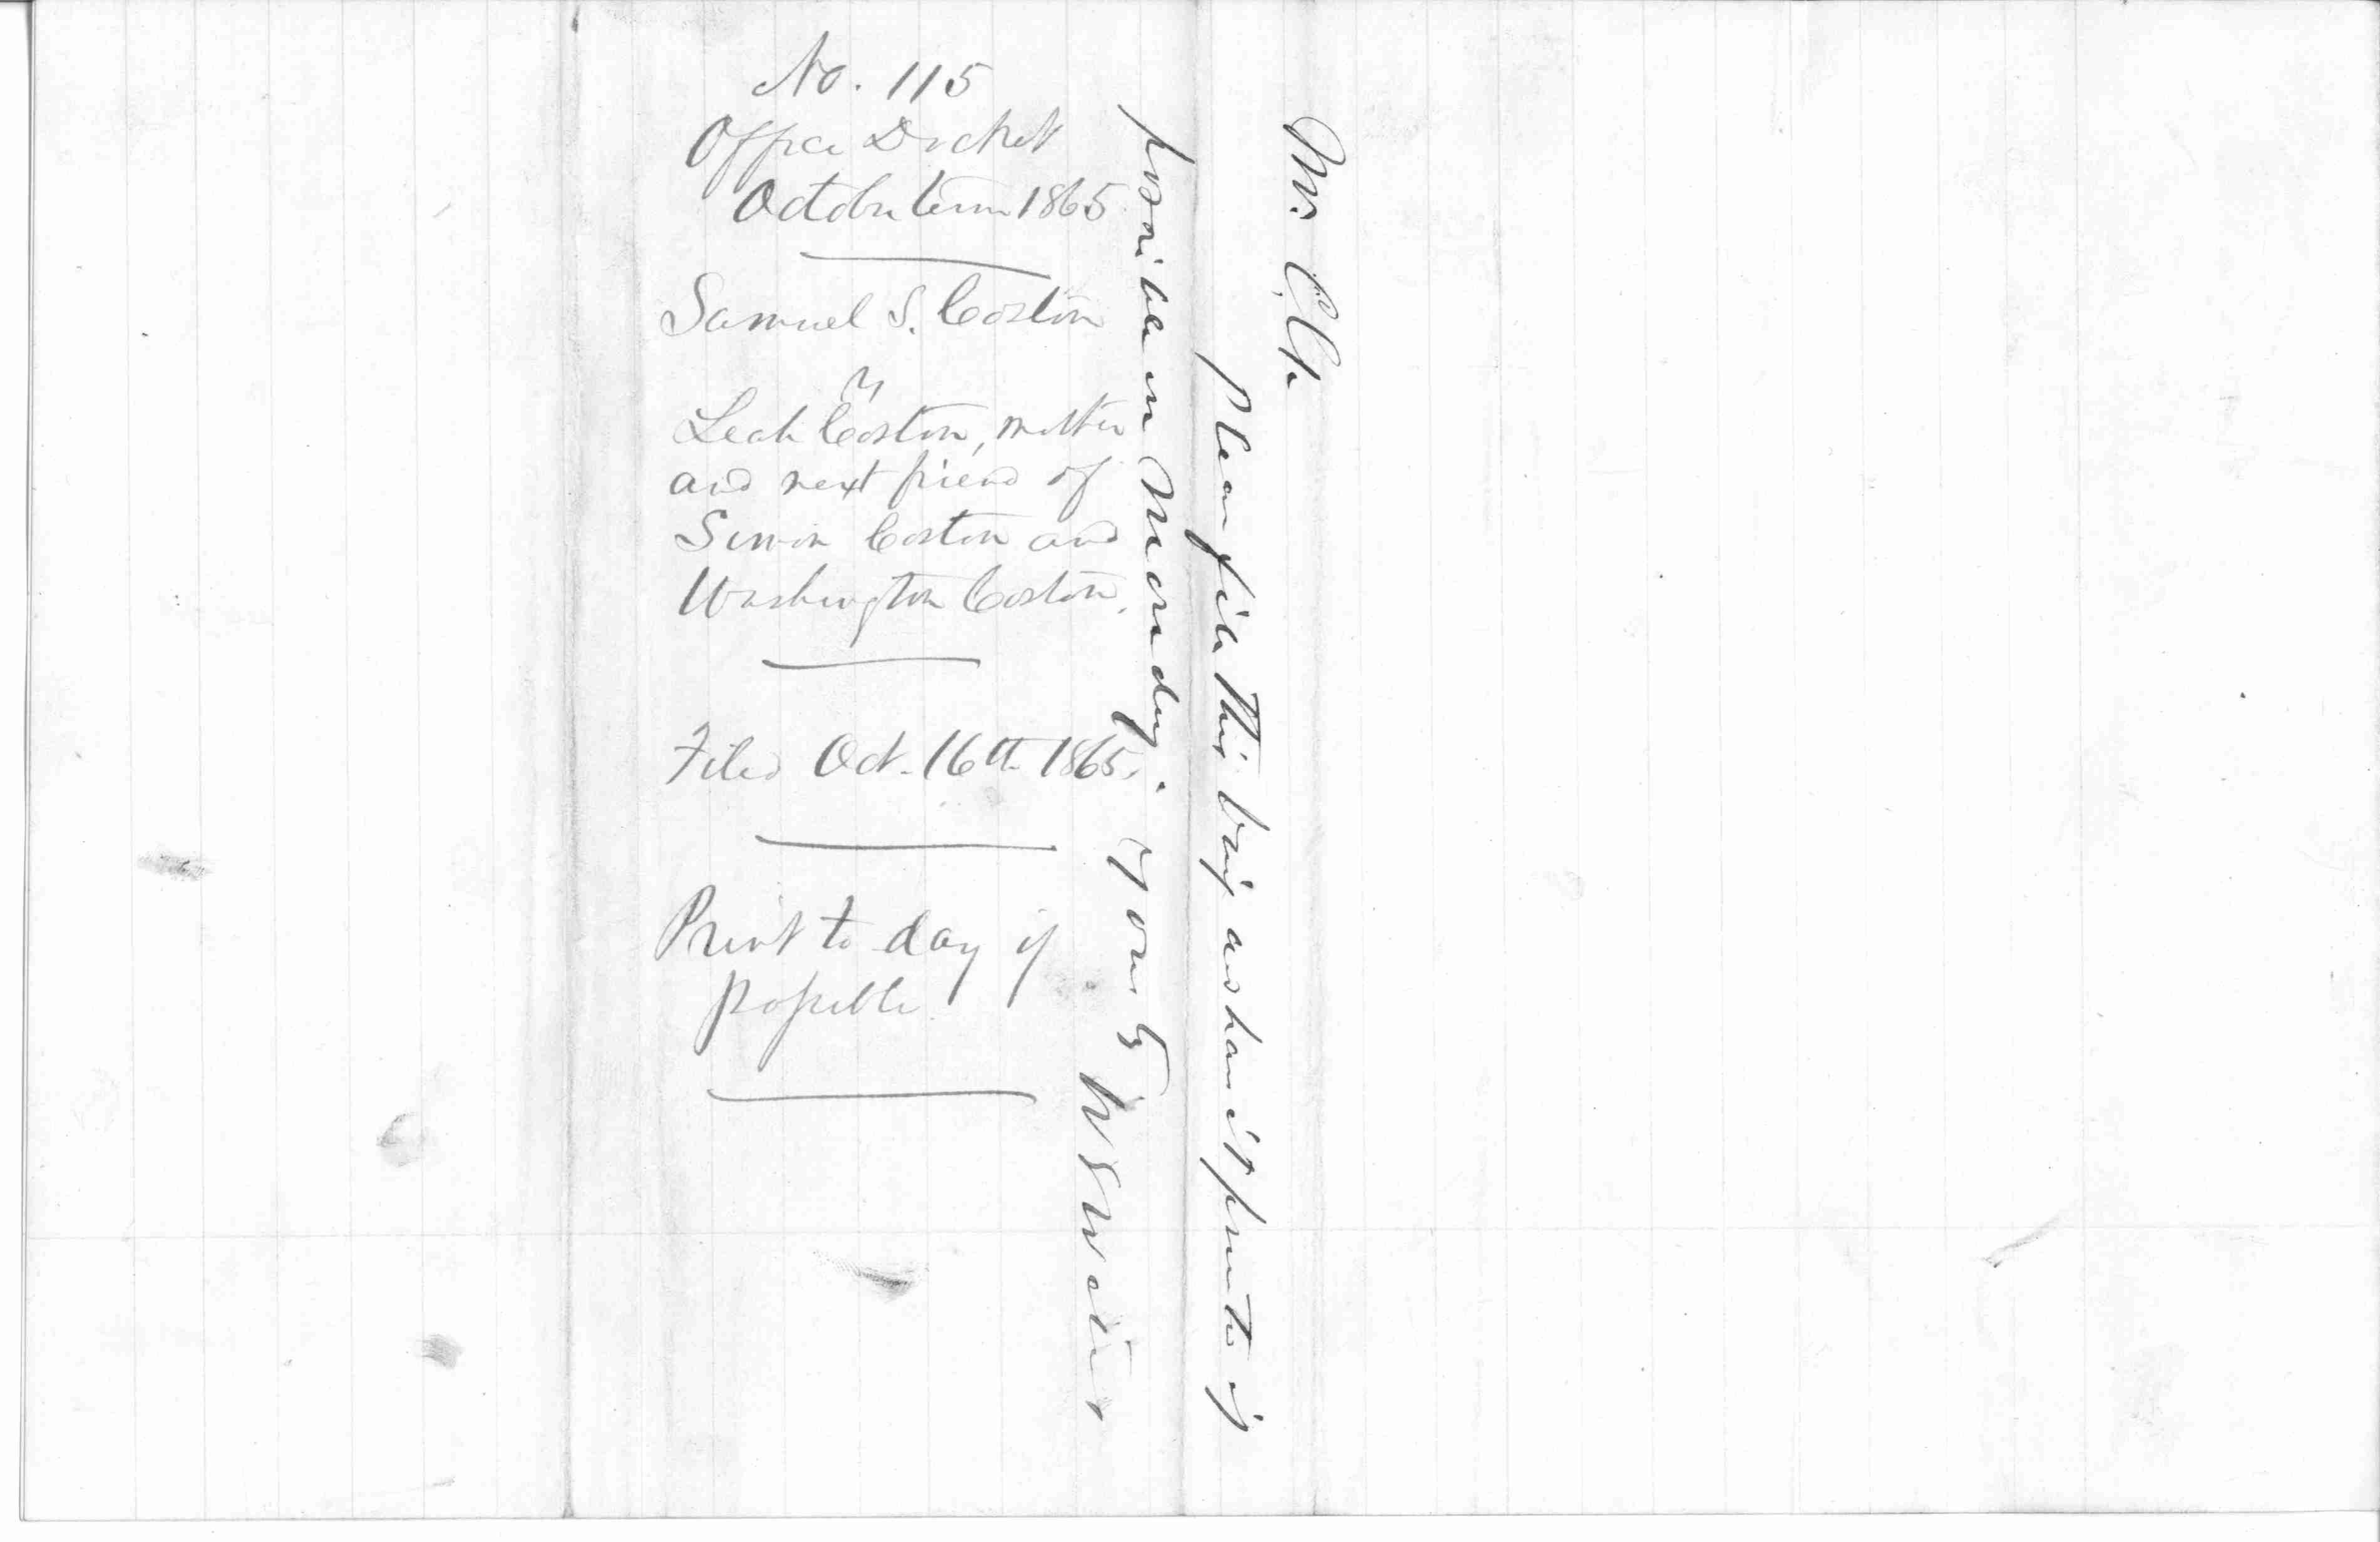 No. 115
Office Docket
October term 1865
Samuel S. Coston
vs
Leah Coston, mother
and next friend of
Simon Coston and
Washington Coston.
Filed Oct. 16th 1865.
Print to day if
possible
Mr.
Please file this brief and have it printed if
possible on Monday. Yours